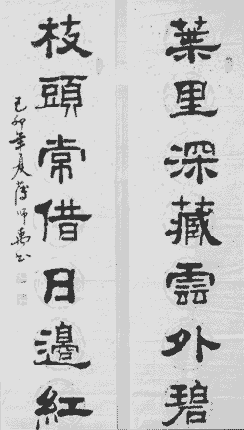 葉里深藏雲外碧
枝頭常借日邊紅
己卯年夏薄師禹書